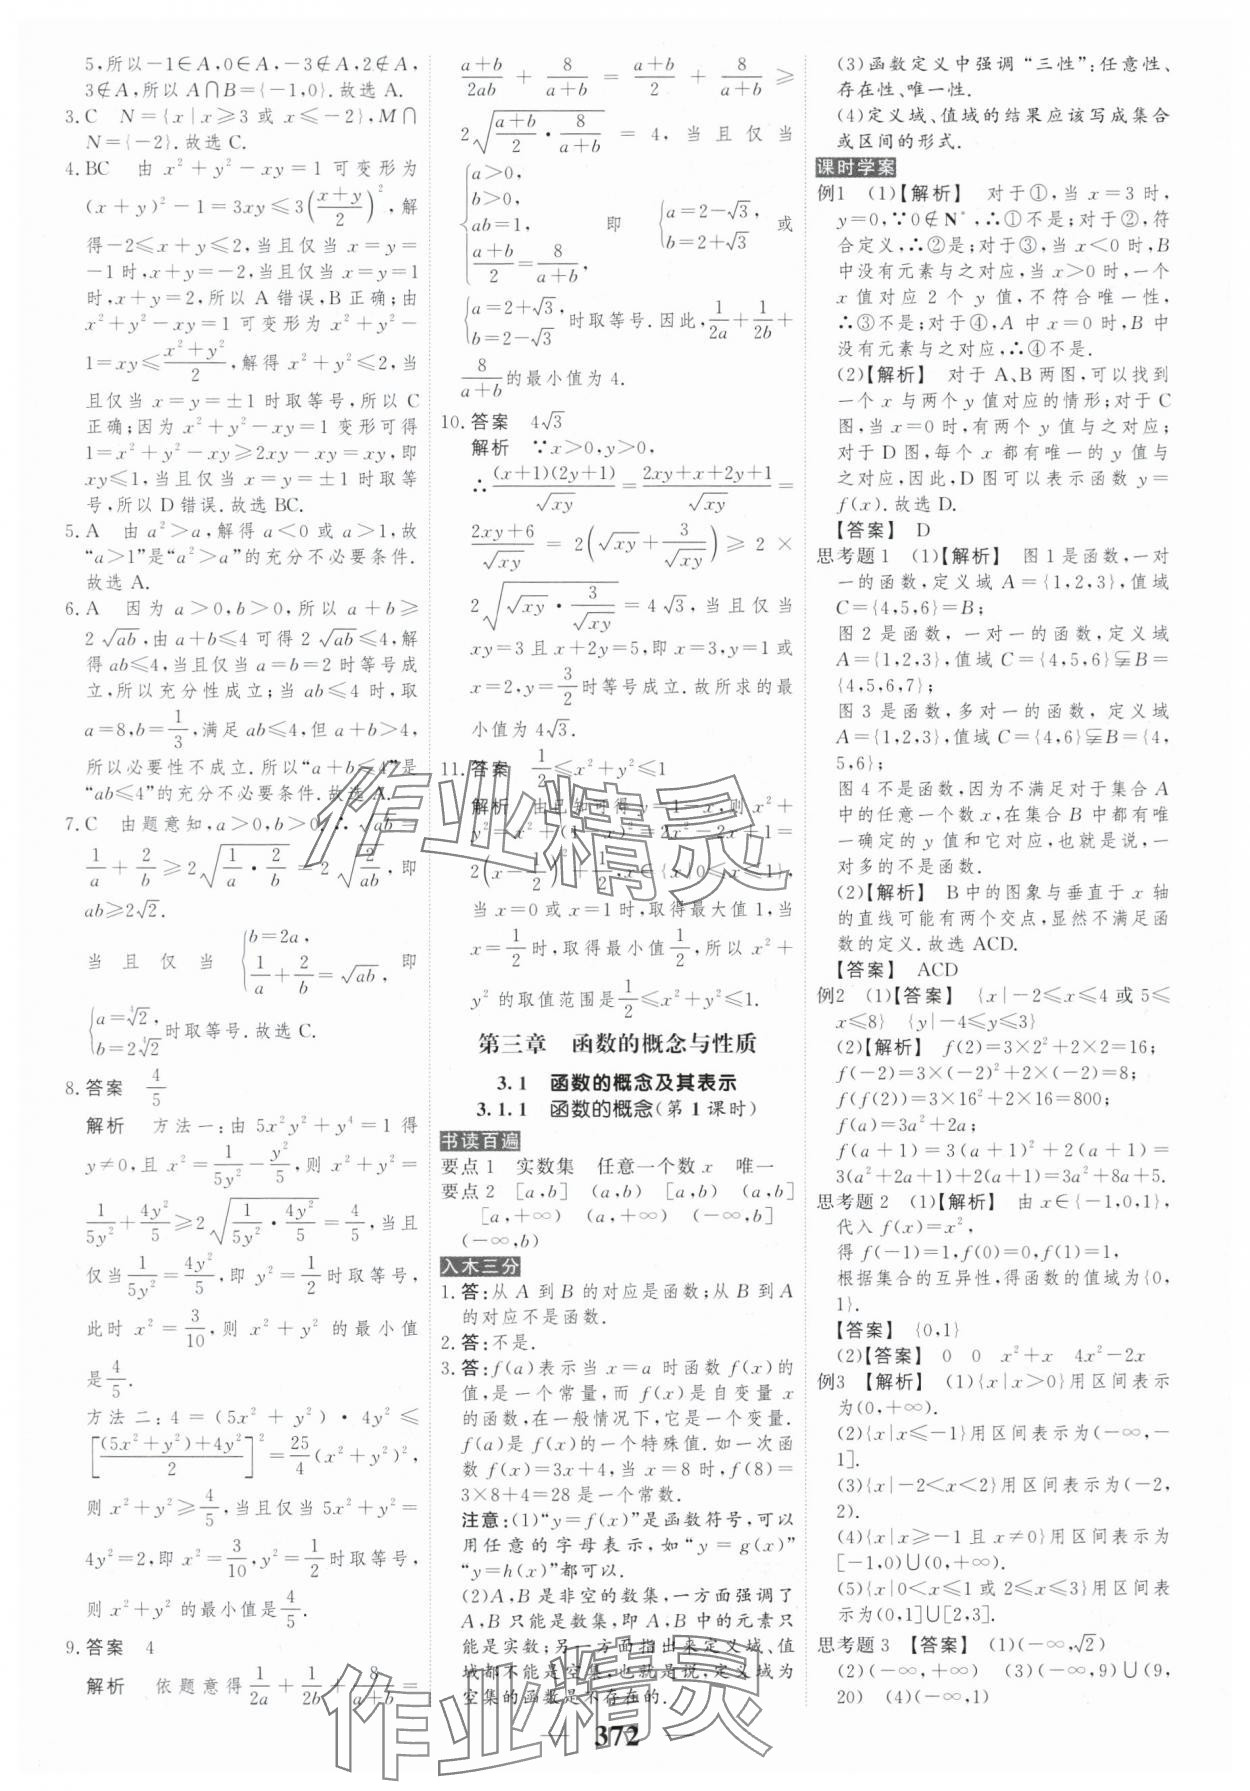 5,所以-1∈A,0∈A,-3∉A,2∉A,
3∉A,所以 A∩B={-1,0}.故选 A.
3.C N={x|x⩾3 或 x⩽-2},M∩
N={-2}.故选 C.
4.BC 由 x²+y²-xy=1 可变形为
(x+y)²-1=3xy⩽3((x+y)/2)²,解
得-2⩽x+y⩽2,当且仅当 x=y=
-1 时,x+y=-2,当且仅当 x=y=1
时,x+y=2,所以 A 错误,B 正确;由
x²+y²-xy=1 可变形为 x²+y²-
1=xy⩽(x²+y²)/2,解得 x²+y²⩽2,当
且仅当 x=y=±1 时取等号,所以 C
正确;因为 x²+y²-xy=1 变形可得
1=x²+y²-xy⩾2xy-xy=xy,即
xy⩽1,当且仅当 x=y=±1 时取等
号,所以 D 错误.故选 BC.
5.A 由 a²>a,解得 a<0 或 a>1,故
“a>1”是“a²>a”的充分不必要条件.
故选 A.
6.A 因为 a>0,b>0,所以 a+b⩾
2√ab,由 a+b⩽4 可得 2√ab⩽4,解
得 ab⩽4,当且仅当 a=b=2 时等号成
立,所以充分性成立;当 ab⩽4 时,取
a=8,b=1/3,满足 ab⩽4,但 a+b>4,
所以必要性不成立.所以“a+b⩽4”是
“ab⩽4”的充分不必要条件.故选 A.
7.C 由题意知,a>0,b>0,∴√ab=
1/a+2/b⩾2√(1/a·2/b)=2√(2/ab),即
ab⩾2√2.
当且仅当{b=2a, 1/a+2/b=√ab, 即
{a=⁴√2, b=2⁴√2 时取等号.故选 C.
8.答案 4/5
解析 方法一:由 5x²y²+y⁴=1 得
y≠0,且 x²=1/(5y²)-y²/5,则 x²+y²=
1/(5y²)+4y²/5⩾2√(1/(5y²)·4y²/5)=4/5,当且
仅当 1/(5y²)=4y²/5,即 y²=1/2 时取等号,
此时 x²=3/10,则 x²+y² 的最小值
是 4/5.
方法二:4=(5x²+y²)·4y²⩽
[((5x²+y²)+4y²)/2]²=25/4(x²+y²)²,
则 x²+y²⩾4/5,当且仅当 5x²+y²=
4y²=2,即 x²=3/10,y²=1/2 时取等号,
则 x²+y² 的最小值是 4/5.
9.答案 4
解析 依题意得 1/2a+1/2b+8/(a+b)=
(a+b)/2ab+8/(a+b)=(a+b)/2+8/(a+b)⩾
2√((a+b)/2·8/(a+b))=4,当且仅当
{a>0, b>0, ab=1, (a+b)/2=8/(a+b), 即 {a=2-√3, b=2+√3 或
{a=2+√3, b=2-√3 时取等号.因此,1/2a+1/2b+
8/(a+b)的最小值为 4.
10.答案 4√3
解析 ∵x>0,y>0,
∴(x+1)(2y+1)/√xy=(2xy+x+2y+1)/√xy=
(2xy+6)/√xy=2(√xy+3/√xy)⩾2×
2√(√xy·3/√xy)=4√3,当且仅当
xy=3 且 x+2y=5,即 x=3,y=1 或
x=2,y=3/2时等号成立.故所求的最
小值为 4√3.
11.答案 1/2⩽x²+y²⩽1
解析 由已知可得 y=1-x,则 x²+
y²=x²+(1-x)²=2x²-2x+1=
2(x-1/2)²+1/2,x∈{x|0⩽x⩽1},
当 x=0 或 x=1 时,取得最大值 1,当
x=1/2时,取得最小值1/2,所以 x²+
y² 的取值范围是1/2⩽x²+y²⩽1.
第三章 函数的概念与性质
3.1 函数的概念及其表示
3.1.1 函数的概念(第 1 课时)
书读百遍
要点 1 实数集 任意一个数 x 唯一
要点 2 [a,b] (a,b) [a,b) (a,b]
[a,+∞) (a,+∞) (-∞,b]
(-∞,b)
入木三分
1.答:从 A 到 B 的对应是函数;从 B 到 A
的对应不是函数.
2.答:不是.
3.答:f(a)表示当 x=a 时函数 f(x)的
值,是一个常量,而 f(x)是自变量 x
的函数,在一般情况下,它是一个变量.
f(a)是 f(x)的一个特殊值.如一次函
数 f(x)=3x+4,当 x=8 时,f(8)=
3×8+4=28 是一个常数.
注意:(1)“y=f(x)”是函数符号,可以
用任意的字母表示,如“y=g(x)”
“y=h(x)”都可以.
(2)A,B 是非空的数集,一方面强调了
A,B 只能是数集,即 A,B 中的元素只
能是实数;另一方面指出来定义域、值
域都不能是空集,也就是说,定义域为
空集的函数是不存在的.
(3)函数定义中强调“三性”:任意性、
存在性、唯一性.
(4)定义域、值域的结果应该写成集合
或区间的形式.
课时学案
例1 (1)【解析】 对于①,当 x=3 时,
y=0,∵0∉N*,∴①不是;对于②,符
合定义,∴②是;对于③,当 x<0 时,B
中没有元素与之对应,当 x>0 时,一个
x 值对应 2 个 y 值,不符合唯一性,
∴③不是;对于④,A 中 x=0 时,B 中
没有元素与之对应,∴④不是.
(2)【解析】 对于 A、B 两图,可以找到
一个 x 与两个 y 值对应的情形;对于 C
图,当 x=0 时,有两个 y 值与之对应;
对于 D 图,每个 x 都有唯一的 y 值与
之对应,因此,D 图可以表示函数 y=
f(x).故选 D.
【答案】 D
思考题 1 (1)【解析】 图 1 是函数,一对
一的函数,定义域 A={1,2,3},值域
C={4,5,6}=B;
图 2 是函数,一对一的函数,定义域
A={1,2,3},值域 C={4,5,6}⫋B=
{4,5,6,7};
图 3 是函数,多对一的函数,定义域
A={1,2,3},值域 C={4,6}⫋B={4,
5,6};
图 4 不是函数,因为不满足对于集合 A
中的任意一个数 x,在集合 B 中都有唯
一确定的 y 值和它对应,也就是说,一
对多的不是函数.
(2)【解析】 B 中的图象与垂直于 x 轴
的直线可能有两个交点,显然不满足函
数的定义.故选 ACD.
【答案】 ACD
例2 (1)【答案】 {x|-2⩽x⩽4 或 5⩽
x⩽8} {y|-4⩽y⩽3}
(2)【解析】 f(2)=3×2²+2×2=16;
f(-2)=3×(-2)²+2×(-2)=8;
f(f(2))=3×16²+2×16=800;
f(a)=3a²+2a;
f(a+1)=3(a+1)²+2(a+1)=
3(a²+2a+1)+2(a+1)=3a²+8a+5.
思考题 2 (1)【解析】 由 x∈{-1,0,1},
代入 f(x)=x²,
得 f(-1)=1,f(0)=0,f(1)=1,
根据集合的互异性,得函数的值域为{0,
1}.
【答案】 {0,1}
(2)【答案】 0 0 x²+x 4x²-2x
例3 【解析】 (1){x|x>0}用区间表示
为(0,+∞).
(2){x|x⩽-1}用区间表示为(-∞,-
1].
(3){x|-2<x<2}用区间表示为(-2,
2).
(4){x|x⩾-1 且 x≠0}用区间表示为
[-1,0)∪(0,+∞).
(5){x|0<x⩽1 或 2⩽x⩽3}用区间表
示为(0,1]∪[2,3].
思考题 3 【答案】 (1)(-∞,√2)
(2)(-∞,+∞) (3)(-∞,9)∪(9,
20) (4)(-∞,1)
372
作业精灵
作业精灵